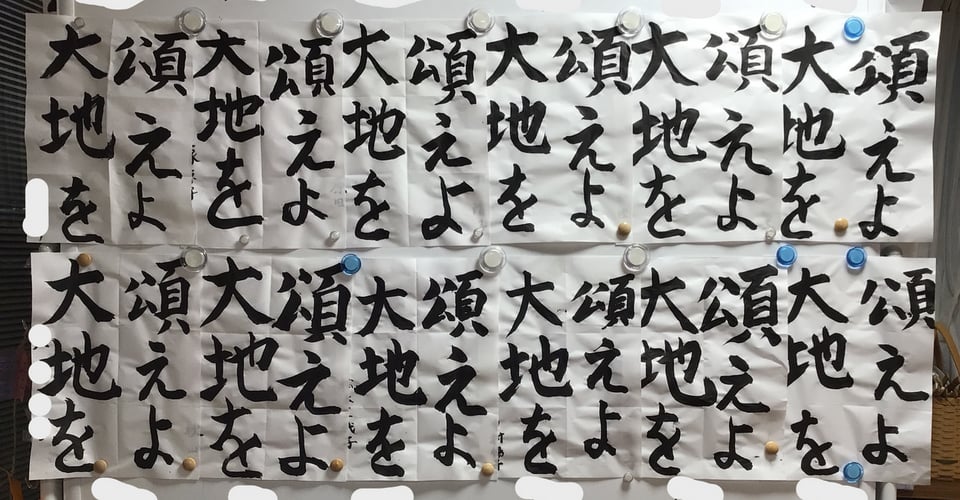 頌えよ
大地を
頌えよ
大地を
頌えよ
大地を
頌えよ
大地を
頌えよ
大地を
頌えよ
大地を
頌えよ
大地を
頌えよ
大地を
頌えよ
大地を
頌えよ
大地を
頌えよ
大地を
頌えよ
大地を